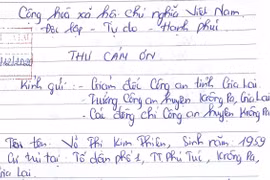 Cộng hoà xã hội chỉ nghĩa Việt Nam
Độc lập - Tự do - Hạnh phúc
THƯ CẢM ƠN
Kính gửi : - Giám đốc Công an tỉnh Gia Lai
- Trưởng Công an huyện Krông Pa, Gia Lai
- Các đồng chí Công an huyện Krông Pa
Tôi tên: Võ Thị Kim Phiến, Sinh năm: 1959
Cư trú tại: Tổ dân phố 1, TT. Phú Túc, Krông Pa,
Gia Lai.